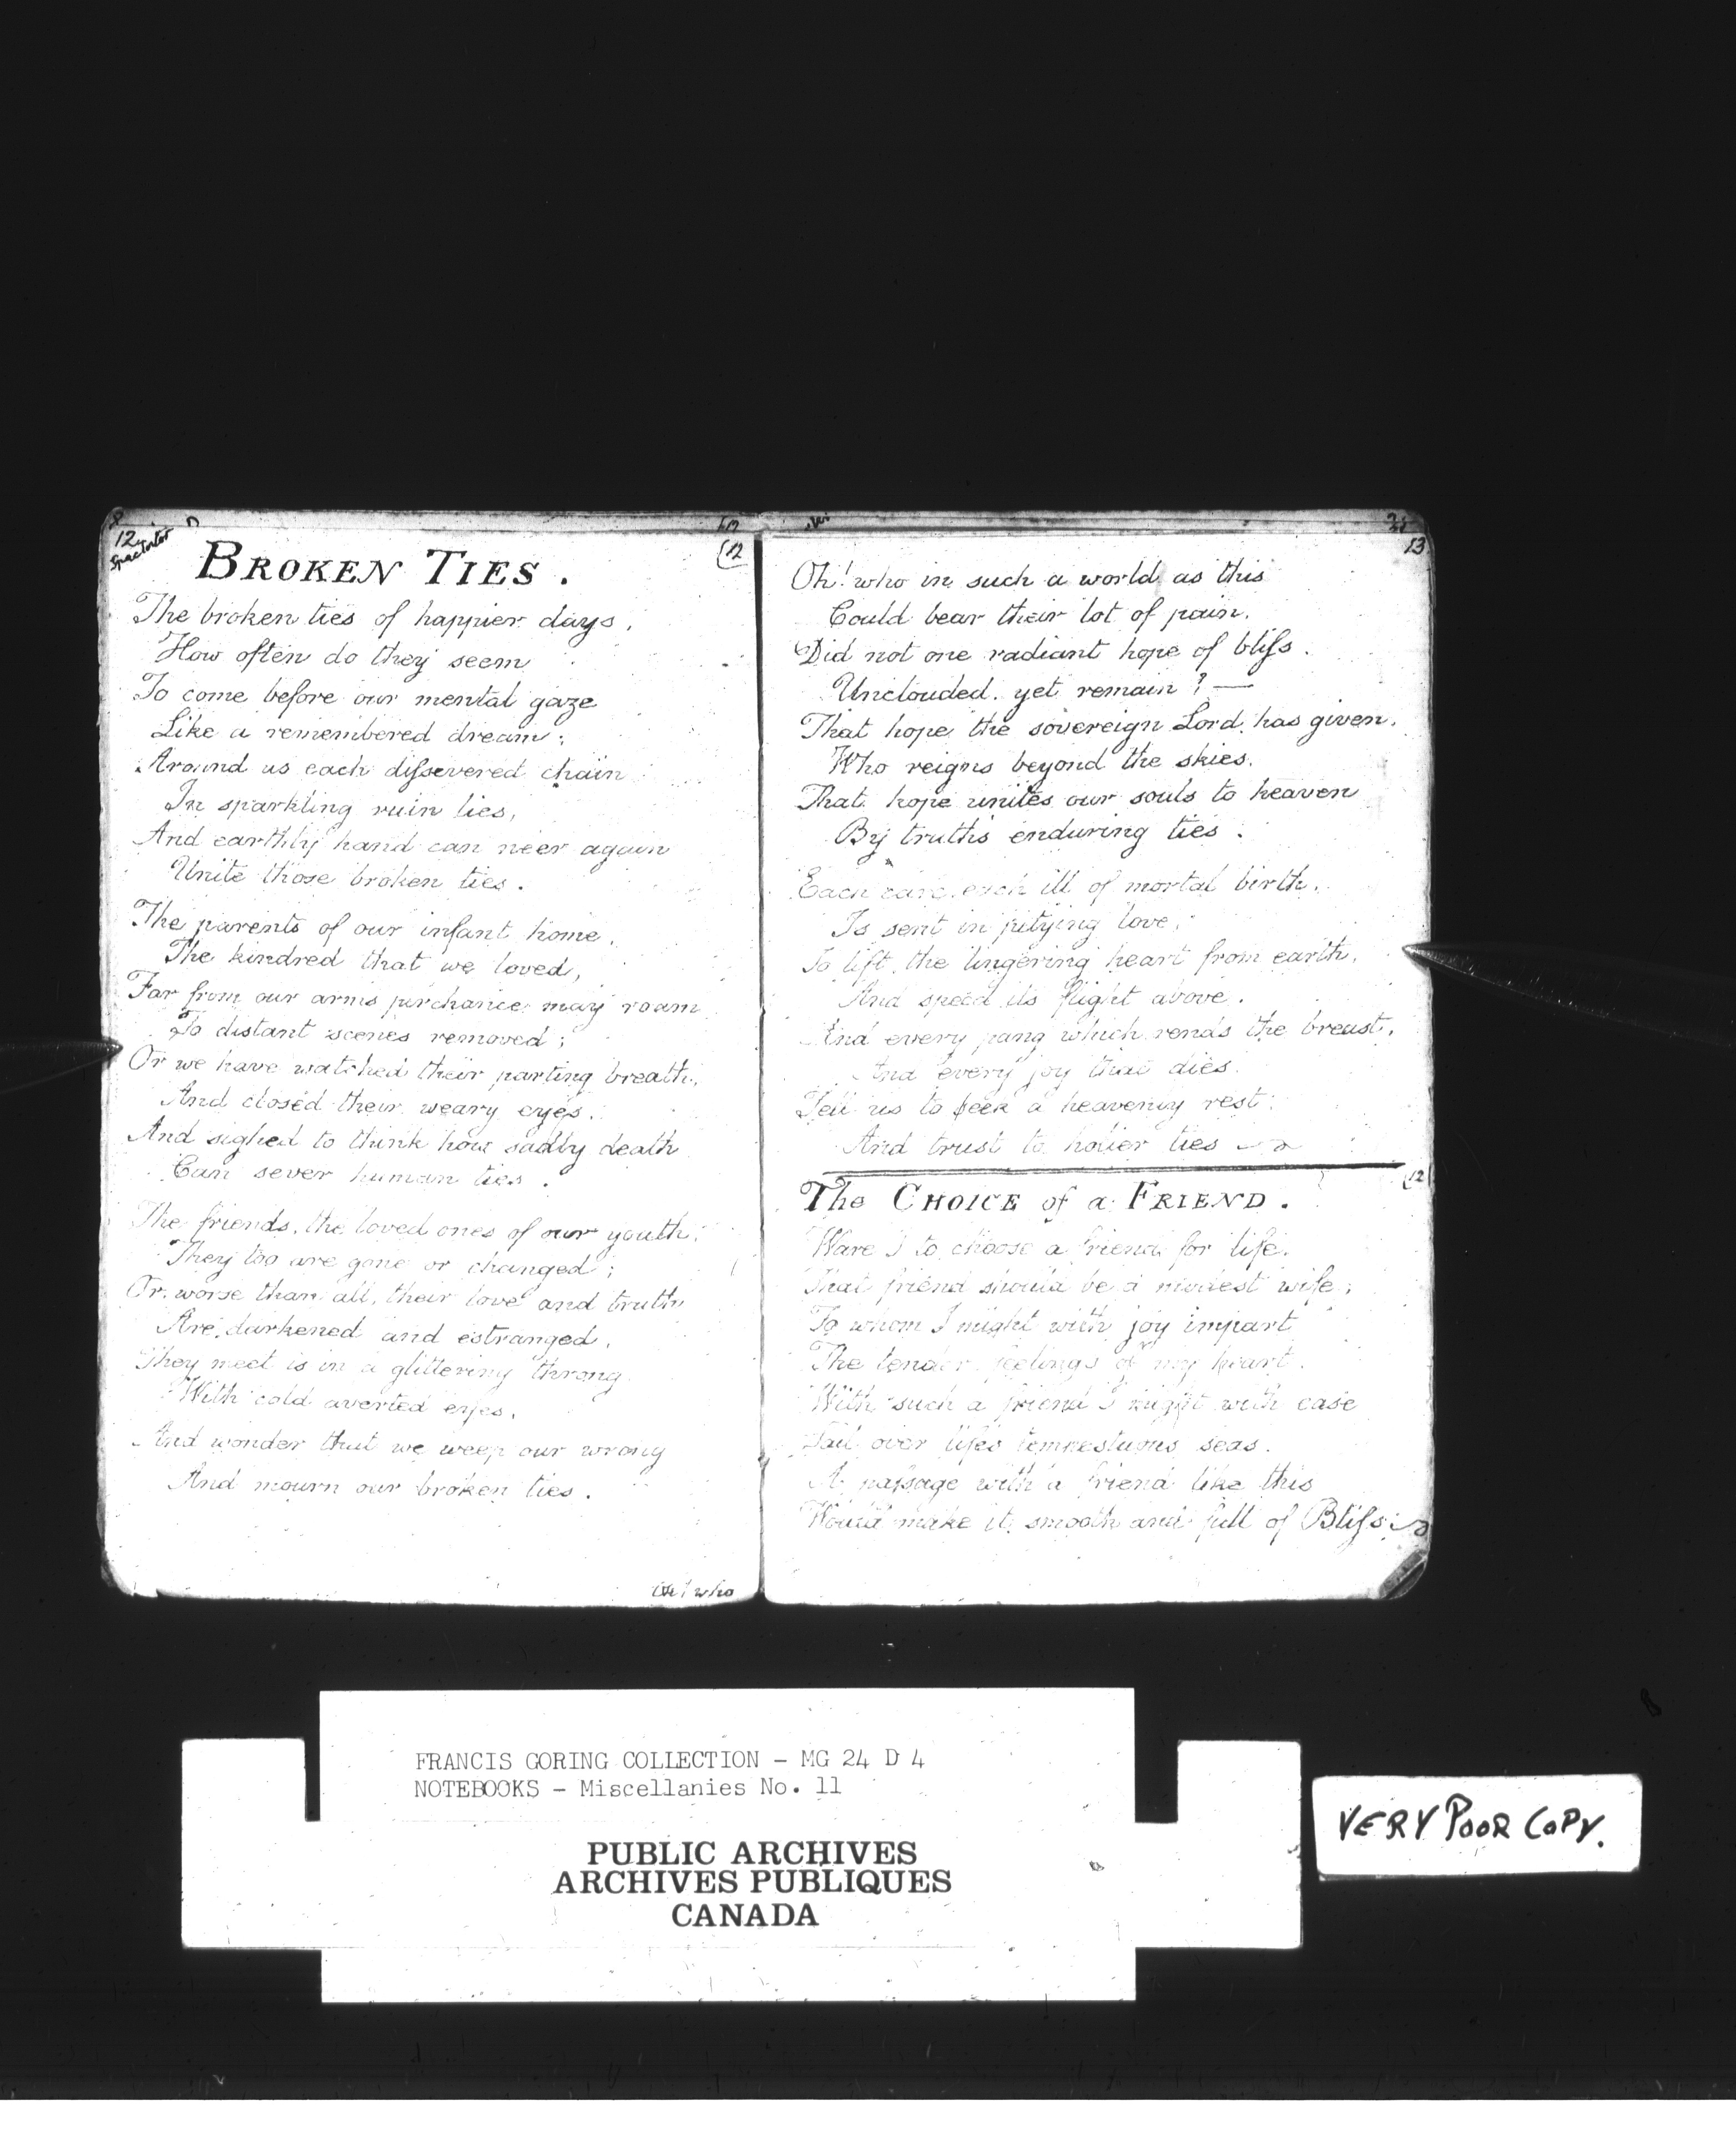 12
Spectator
(12
BROKEN TIES.
The broken ties of happier days,
How often do they seem
To come before our mental gaze
Like a remembered dream;
Around us each diſsevered chain
In sparkling ruin lies,
And earthly hand can neer again
Unite those broken ties.
The parents of our infant home,
The kindred that we loved,
Far from our arms perchance may roam
To distant scenes removed;
Or we have watched their parting breath,
And closed their weary eyes.
And sighed to think how sadly death
Can sever human ties.
The friends, the loved ones of our youth,
They too are gone or changed;
Or, worse than all, their love and truth
Are darkened and estranged,
They meet is in a glittering throng
With cold averted eyes,
And wonder that we weep our wrong
And mourn our broken ties.
Oh! who
13
Oh! who in such a world as this
Could bear their lot of pain,
Did not one radiant hope of bliſs.
Unclouded, yet remain? —
That hope the sovereign Lord has given,
Who reigns beyond the skies.
That hope unites our souls to heaven
By truths enduring ties.
Each care, each ill of mortal birth,
Is sent in pitying love,
To lift the lingering heart from earth,
And speed its flight above.
And every pang which rends the breast,
And every joy that dies.
Tell us to seek a heavenly rest.
And trust to holier ties
(12
The CHOICE of a FRIEND.
Ware I to choose a friend for life,
That friend should be a modest wife;
To whom I might with joy impart
The tender feelings of my heart.
With such a friend I might with ease
Sail over lifes tempestuous seas.
A paſsage with a friend like this
Would make it smooth and full of Bliſs
FRANCIS GORING COLLECTION - MG 24 D 4
NOTEBOOKS - Miscellanies No. 11
PUBLIC ARCHIVES
ARCHIVES PUBLIQUES
CANADA
VERY POOR COPY.